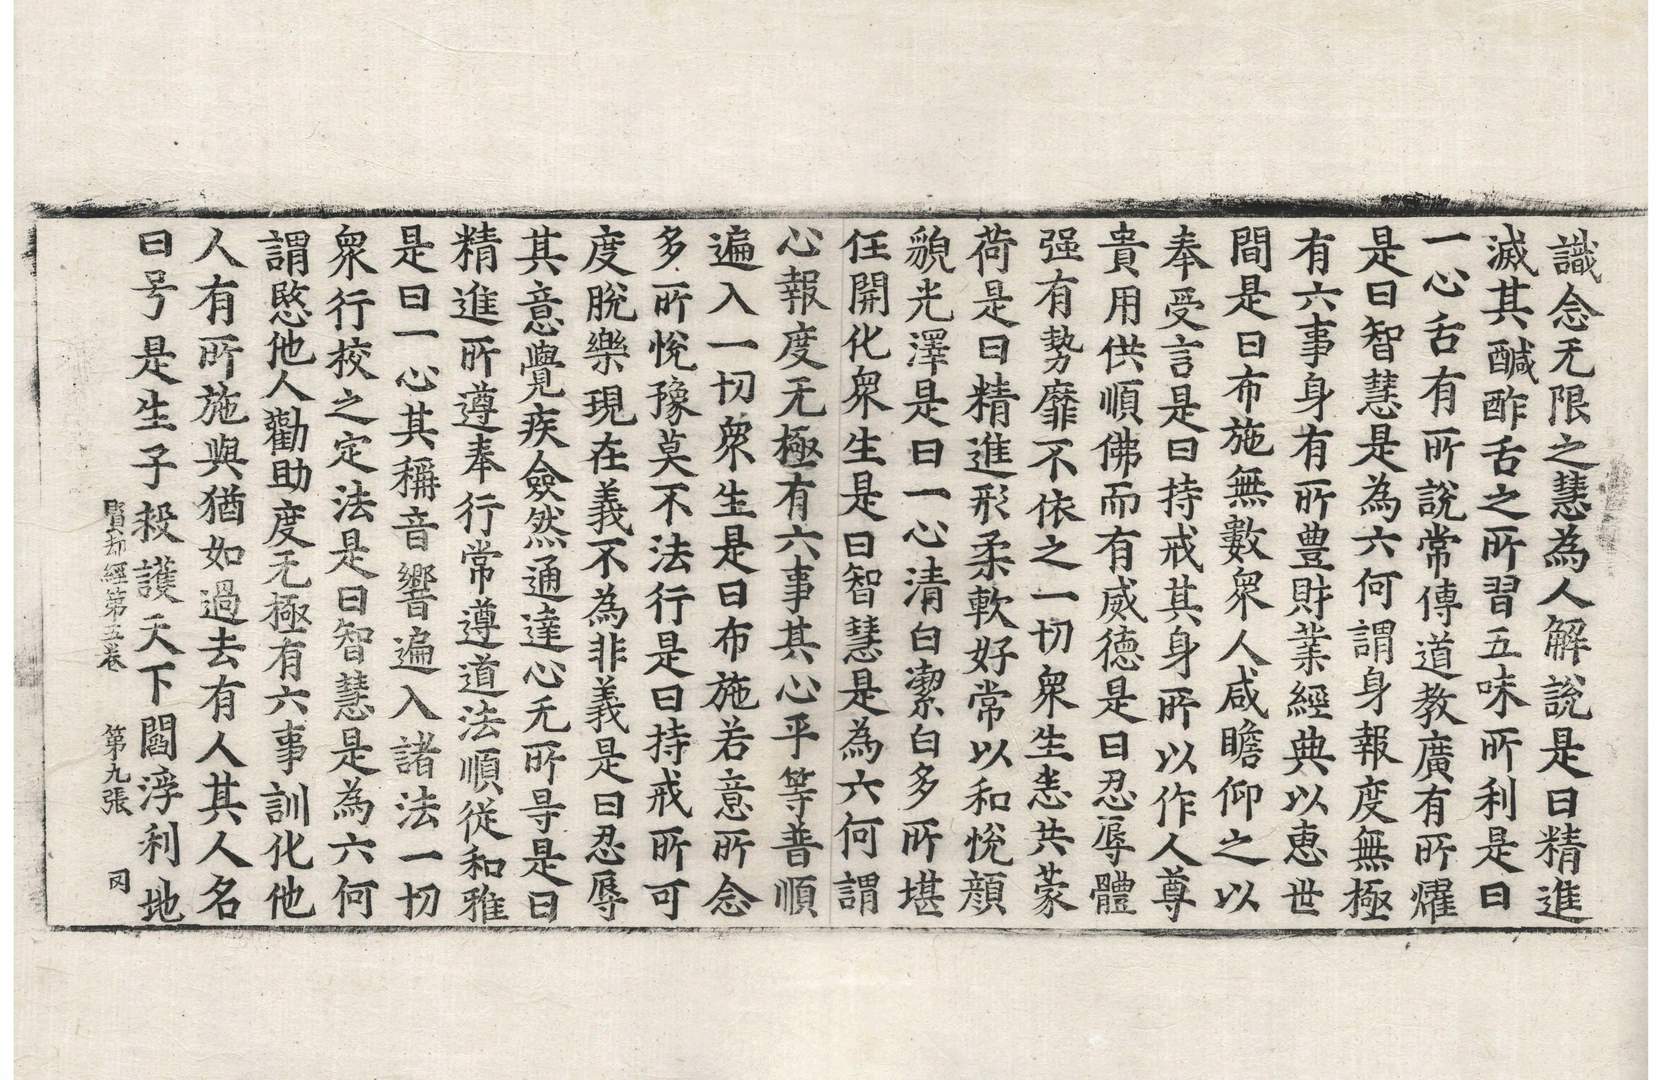 識念无限之慧為人解說是曰精進
滅其醎酢舌之所習五味所利是曰
一心舌有所說常傳道教廣有所燿
是曰智慧是為六何謂身報度無極
有六事身有所豊財業經典以恵世
間是曰布施無數衆人咸瞻仰之以
奉受言是曰持戒其身所以作人尊
貴用供順佛而有威德是曰忍辱體
强有勢靡不依之一切衆生恚共蒙
荷是曰精進形柔軟好常以和悅顔
貌光澤是曰一心清白潔白多所堪
任開化衆生是曰智慧是為六何謂
心報度无極有六事其心平等普順
遍入一切衆生是曰布施若意所念
多所悅豫莫不法行是曰持戒所可
度脫樂現在義不為非義是曰忍辱
其意覺疾僉然通達心无所㝵是曰
精進所遵奉行常遵道法順從和雅
是曰一心其稱音響遍入諸法一切
衆行校之定法是曰智慧是為六何
謂愍他人勸助度无極有六事訓化他
人有所施與猶如過去有人其人名
曰号是生子殺護天下閻浮利地
賢刧經第五卷 第九張